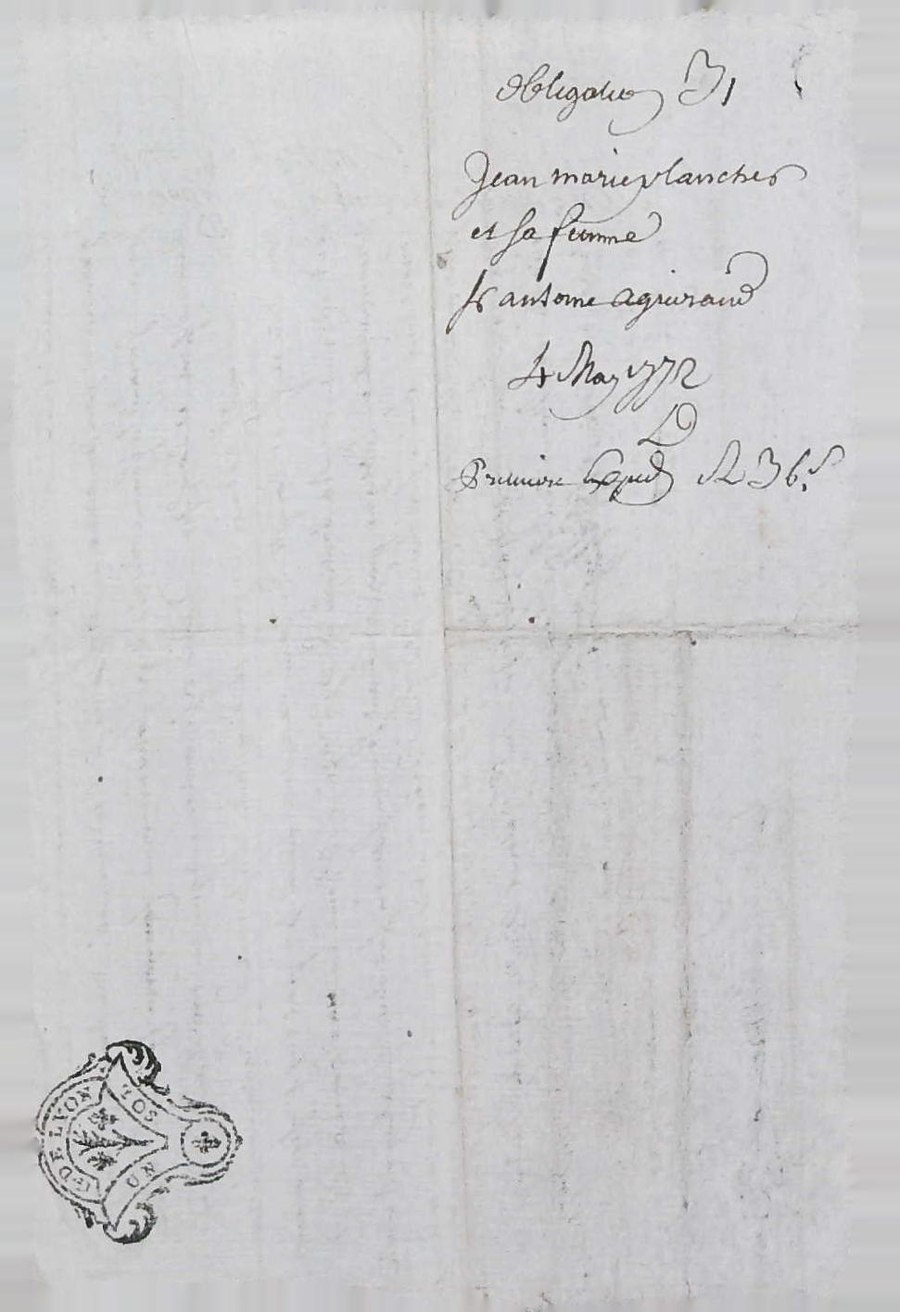 obligation 31
Jean marie planches
et sa femme
antoine agniraud
4 May 1772
Premiere Exped 36 s
UN SOL
G. DE LYON